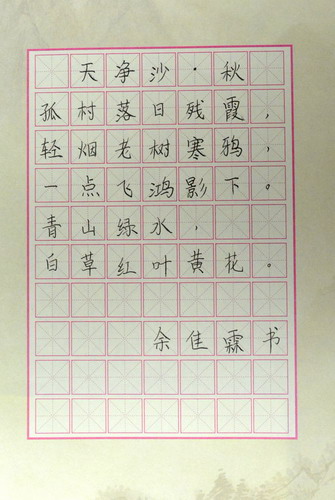 天净沙·秋
孤村落日残霞，
轻烟老树寒鸦，
一点飞鸿影下。
青山绿水，
白草红叶黄花。
余佳霖书